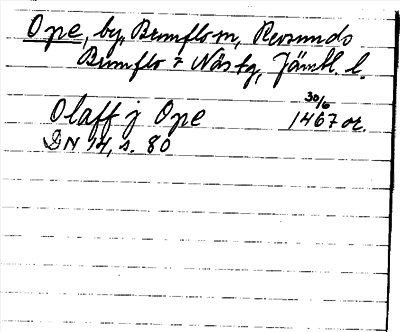 Ope, by, Brunflo sn, Revsunds
Brunflo o Näs tg, Jämtl. l.
30/6
Olaff j Ope 1467 or.
DN 14, s. 80